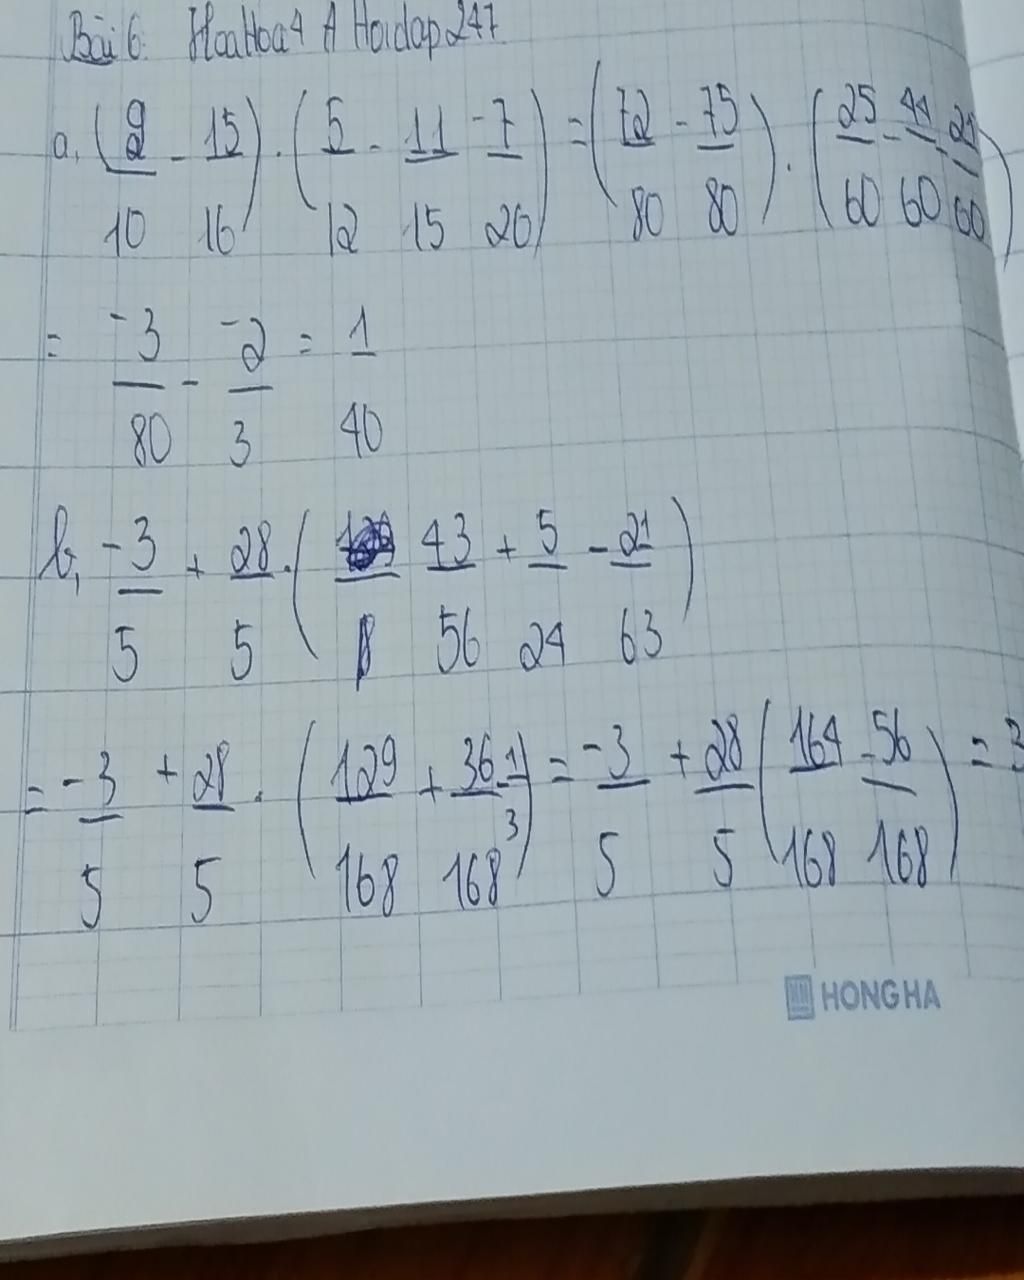 Bài 6: HoaHoa4 A Hoidap247
a, (9/10 - 15/16) . (5/12 - 11/15 - 7/20) = (72/80 - 75/80) . (25/60 - 44/60 - 21/60)
= -3/80 - -2/3 = 1/40
b, -3/5 + 28/5 . ( 43/56 + 5/24 - 21/63 )
= -3/5 + 28/5 . (129/168 + 36/168 - 1/3) = -3/5 + 28/5 (164/168 - 56/168) = 3
HONG HA